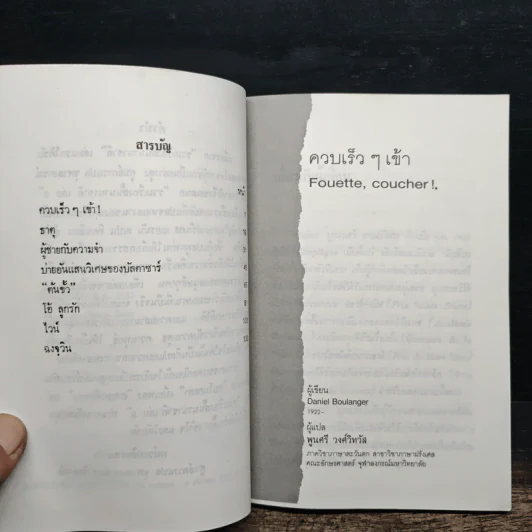 สารบัญ
หน้า
ควบเร็ว ๆ เข้า!
ธาตุ
ผู้ชายกับความจำ
บ่ายอันแสนวิเศษของบัลตาซาร์
"ต้นขั้ว"
โอ้ ลูกรัก
ไวน์
ฉงชุวิน
ควบเร็ว ๆ เข้า
Fouette, coucher!.
ผู้เขียน
Daniel Boulanger
1922-
ผู้แปล
พูนศรี วงศ์วิทวัส
ภาควิชาภาษาตะวันตก สาขาวิชาภาษาฝรั่งเศส
คณะอักษรศาสตร์ จุฬาลงกรณ์มหาวิทยาลัย